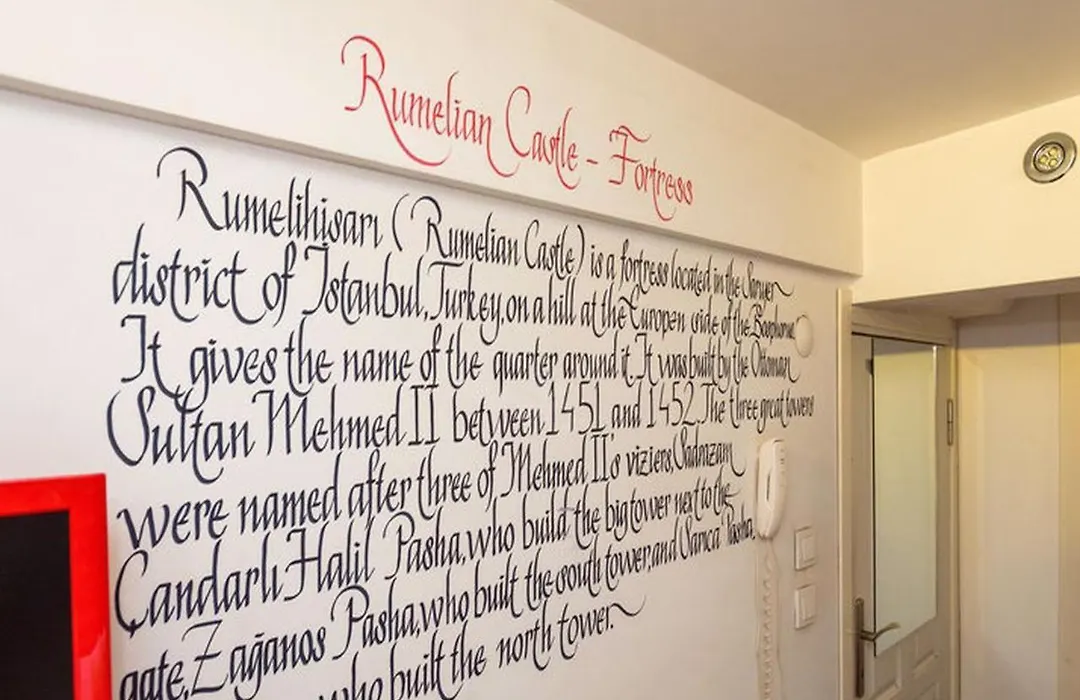 Rumelian Castle - Fortress
Rumelihisarı (Rumelian Castle) is a fortress located in the Sarıyer
district of İstanbul, Turkey, on a hill at the Europen side of the Bosphorus.
It gives the name of the quarter around it. It was built by the Ottoman
Sultan Mehmed II between 1451 and 1452. The three great towers
were named after three of Mehmed II's viziers, Sadrazam
Çandarlı Halil Pasha, who build the big tower next to the
gate, Zağanos Pasha, who built the south tower, and Sarıca Pasha,
who built the north tower.